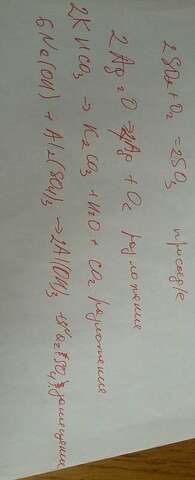 2SO2 + O2 = 2SO3
2Ag2O → 4Ag + O2 разложение
2KHCO3 → K2CO3 + H2O + CO2 разложения
6Na(OH) + Al2(SO4)3 → 2Al(OH)3 замещения